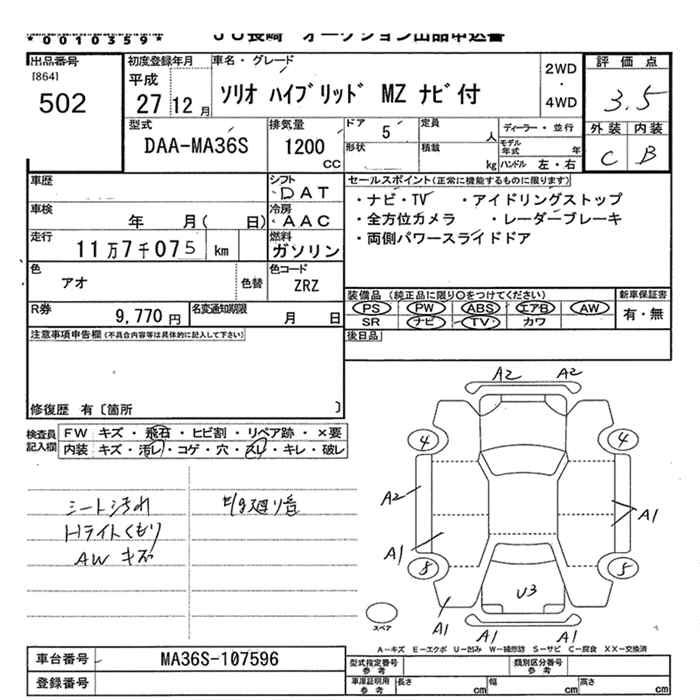 *0010359*
JU長崎 オークション出品申込書
出品番号
[864]
502
初度登録年月
平成
27 12 月
車名・グレード
ソリオ ハイブリッド MZ ナビ付
2WD
・
4WD
評価点
3.5
外装 内装
C B
型式
DAA-MA36S
排気量
1200
CC
ドア
5
形状
定員
人
積載
kg
ディーラー・並行
モデル年式 年
ハンドル 左・右
車歴
車検
年 月( 日)
走行
11万7千075 km
シフト
DAT
冷房
AAC
燃料
ガソリン
色
アオ
色替
色コード
ZRZ
R券
9,770 円
名変通知期限
月 日
セールスポイント(正常に機能するものに限ります)
・ナビ・TV ・アイドリングストップ
・全方位カメラ ・レーダーブレーキ
・両側パワースライドドア
装備品(純正品に限り〇をつけてください)
PS PW ABS エアB AW
SR ナビ TV カワ
新車保証書
有・無
後日品
注意事項申告欄(不具合内容等は具体的に記入して下さい)
修復歴 有〔箇所 〕
検査員
記入欄
FW キズ・飛石・ヒビ割・リペア跡・×要
内装 キズ・汚レ・コゲ・穴・スレ・キレ・破レ
シート汚れ
Hライトくもり
AW キズ
A2 A2
4 4
A2
A1
A1
8 5
U3
A1 A1
スペア
A-キズ E-エクボ U-凹み W-補修跡 S-サビ C-腐食 XX-交換済
車台番号
MA36S-107596
登録番号
型式指定番号
参考
類別区分番号
参考
車庫証明用
参考
長さ cm
幅 cm
高さ cm